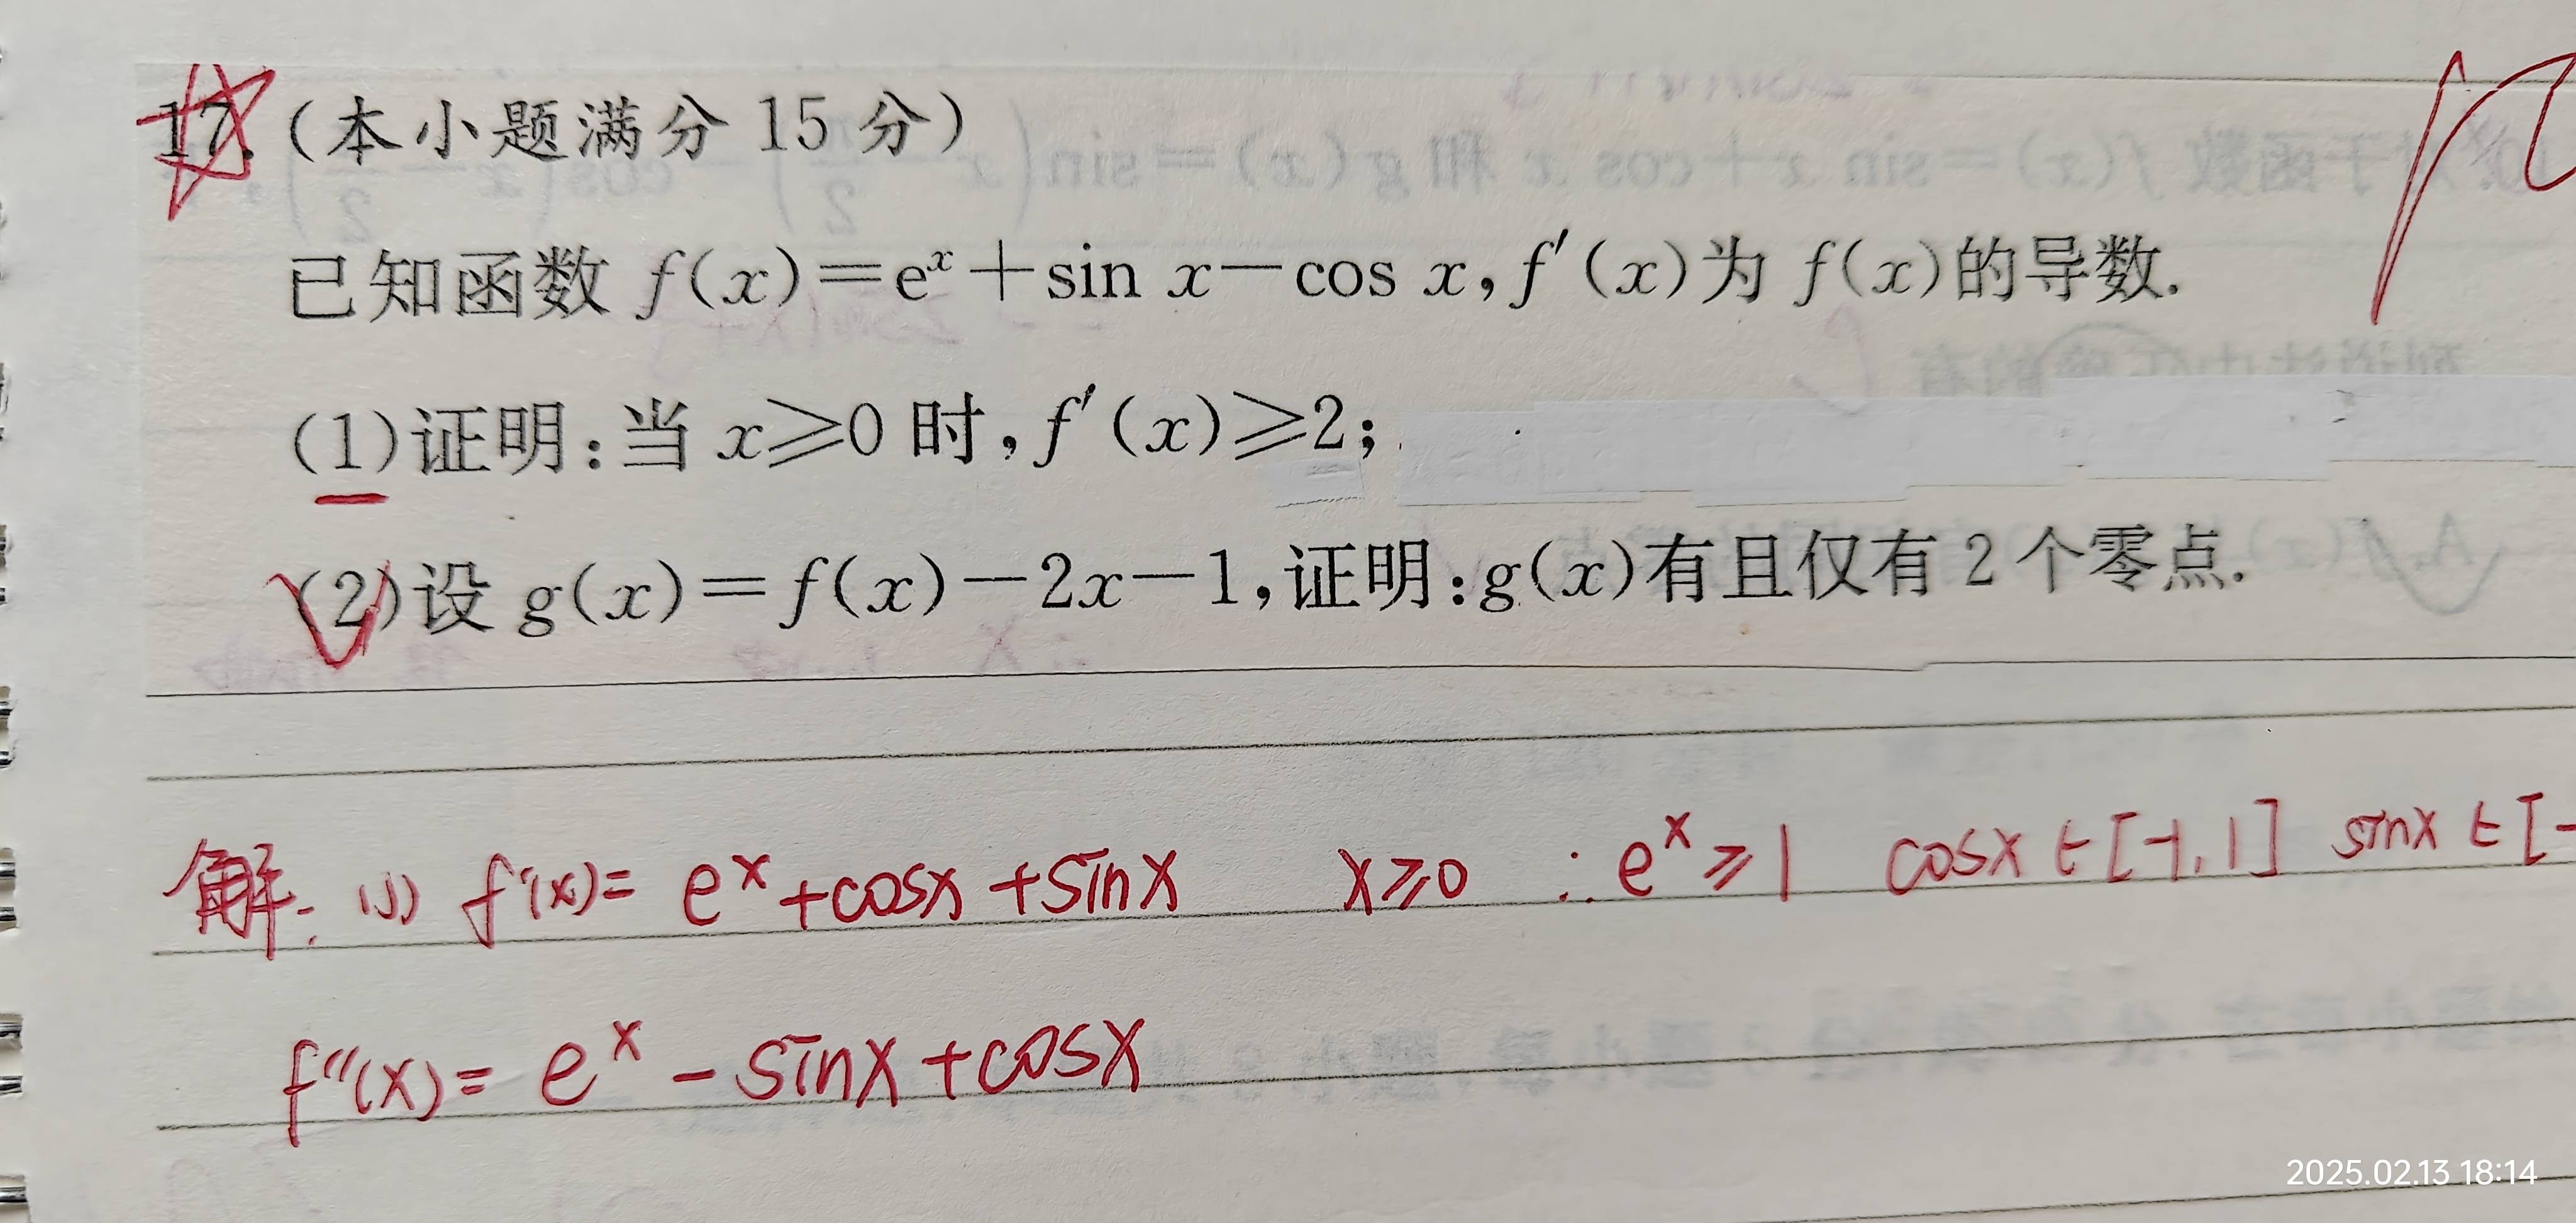 17.(本小题满分 15 分)
已知函数 f(x)=eˣ+sin x-cos x,f′(x)为 f(x)的导数.
(1)证明:当 x⩾0 时,f′(x)⩾2;
(2)设 g(x)=f(x)-2x-1,证明:g(x)有且仅有 2 个零点.
解. (1) f'(x)= eˣ+cosx+sinx x⩾0 ∴eˣ⩾1 cosx∈[-1,1] sinx∈[-
f''(x)= eˣ-sinx+cosx
2025.02.13 18:14